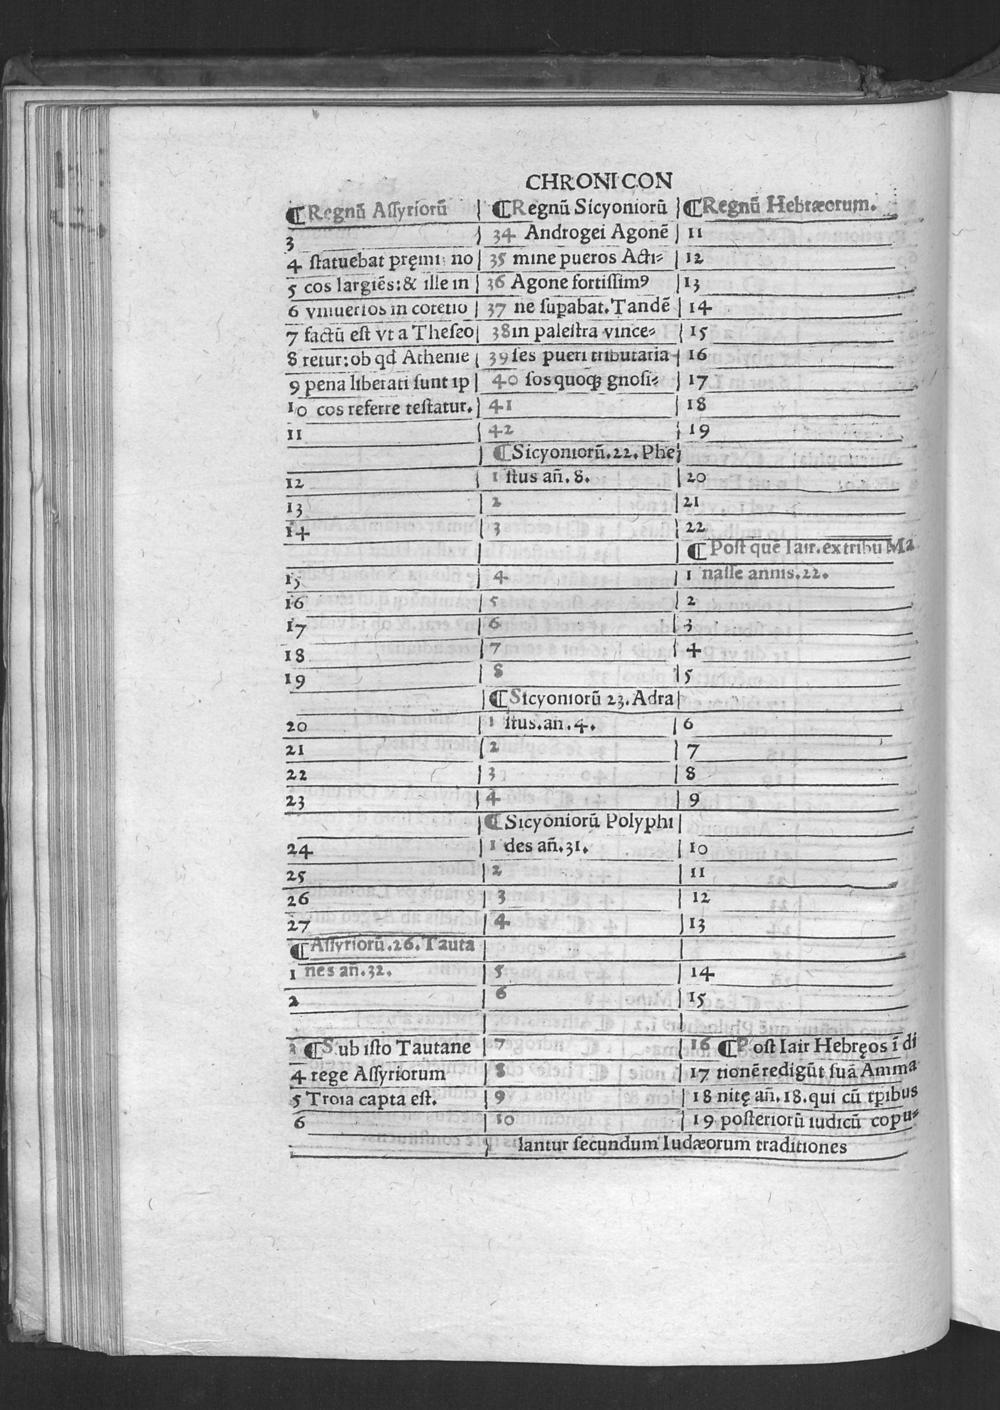 CHRONICON
¶Regnū Assyriorū | ¶Regnū Sicyoniorū | ¶Regnū Hebræorum.
3 | 34 Androgei Agonē | 11
4 statuebat pręmi no | 35 mine pueros Acti⸗ | 12
5 cos largiēs:& ille in | 36 Agone fortissimꝰ | 13
6 vniuersos in cotetio | 37 ne supabat. Tandē | 14
7 factū est vt a Theseo | 38 in palestra vince⸗ | 15
8 retur: ob qd Athenie | 39 ses pueri tributaria | 16
9 pena liberati sunt ip | 40 sos quoqꝫ gnosi⸗ | 17
10 cos referre testatur. | 41 | 18
11 | 42 | 19
¶Sicyoniorū.22. Phe
12 | 1 stus añ. 8. | 20
13 | 2 | 21
14 | 3 | 22
¶Post quē Iair. ex tribu Ma
15 | 4 | 1 nasse annis.22.
16 | 5 | 2
17 | 6 | 3
18 | 7 | 4
19 | 8 | 5
¶Sicyoniorū 23. Adra
20 | 1 stus. an. 4. | 6
21 | 2 | 7
22 | 3 | 8
23 | 4 | 9
¶Sicyoniorū Polyphi
24 | 1 des añ.31. | 10
25 | 2 | 11
26 | 3 | 12
27 | 4 | 13
¶Assyriorū.26. Tauta
1 nes añ.32. | 5 | 14
2 | 6 | 15
3 ¶Sub isto Tautane | 7 | 16 ¶Post Iair Hebręos ī di
4 rege Assyriorum | 8 | 17 tionē redigūt suā Amma
5 Troia capta est. | 9 | 18 nitę añ. 18. qui cū tpibus
6 | 10 | 19 posteriorū iudicū copu⸗
lantur secundum Iudæorum traditiones